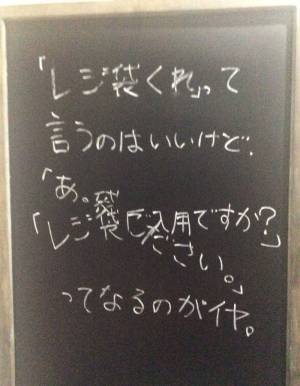 「レジ袋くれ」って
言うのはいいけど、
「あ。袋
「レジ袋ご入用ですか？」
ださい。」
ってなるのがイヤ。